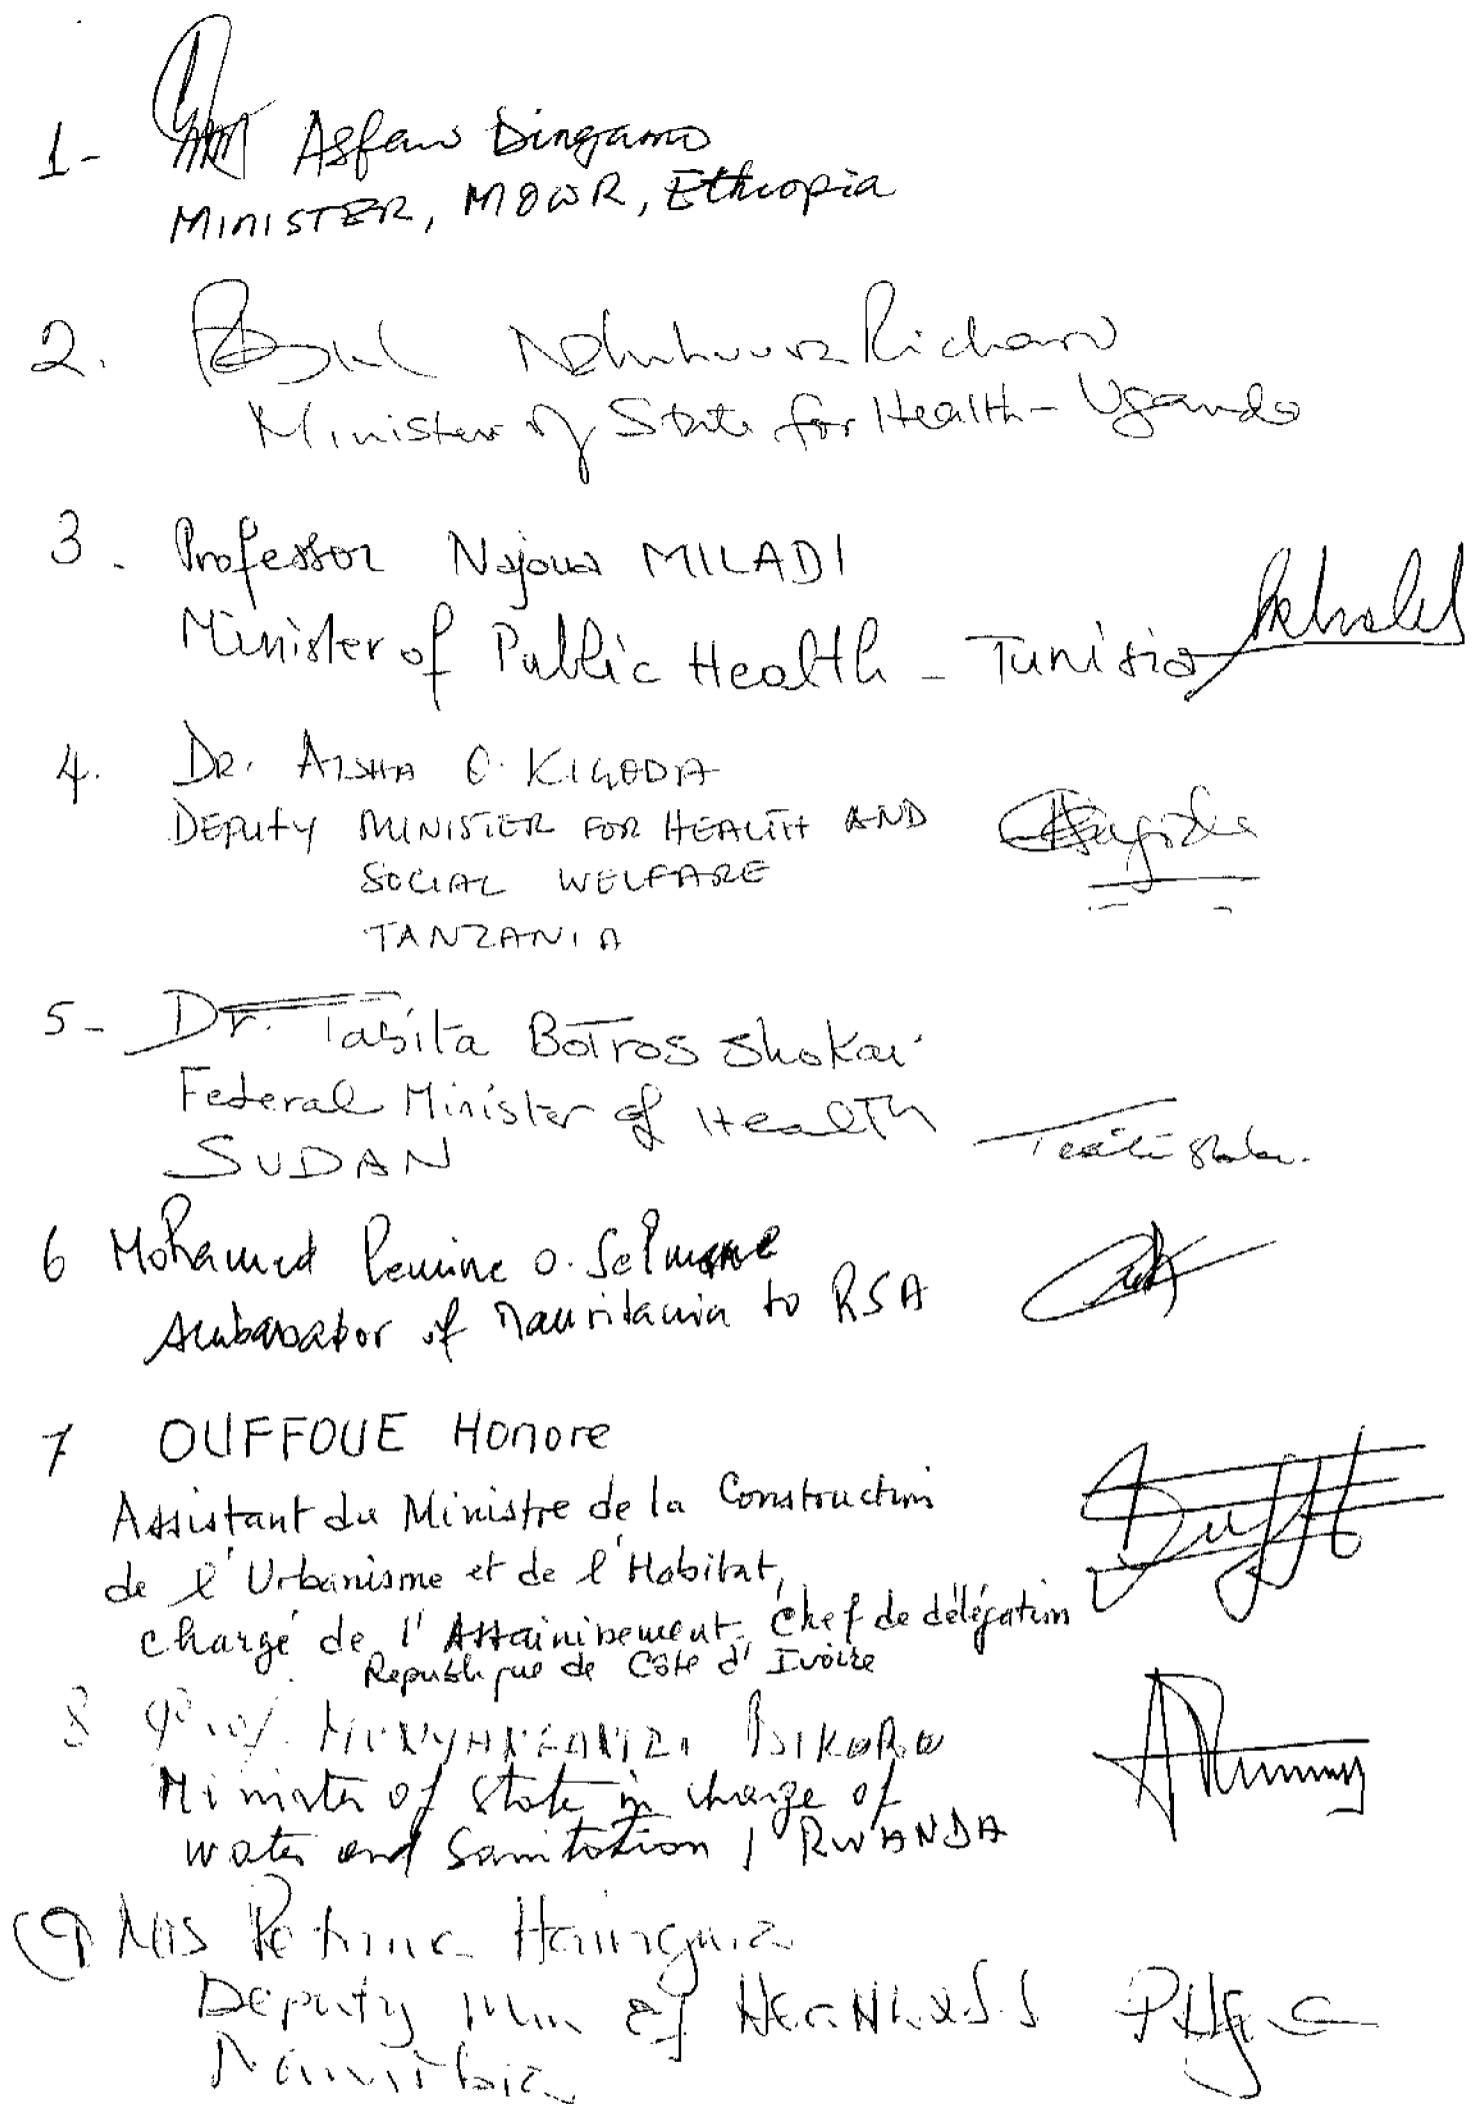 1- Asfaw Dingamo
MINISTER, MOWR, Ethiopia
2. Richard
Minister of State for Health - Uganda
3. Professor Najoua MILADI
Minister of Public Health - Tunisia
4. DR. AISHA O. KIGODA
DEPUTY MINISTER FOR HEALTH AND
SOCIAL WELFARE
TANZANIA
5- Dr. Tabita BOTROS Shokai
Federal Minister of Health
SUDAN
6 Mohamed Lemine O. Selmane
Ambassador of Mauritania to RSA
7 OUFFOUE Honore
Assistant du Ministre de la Construction
de l'Urbanisme et de l'Habitat,
chargé de l'Assainissement, Chef de délégation
Republique de Côte d'Ivoire
8 Prof. BIKORO
Minister of State in charge of
water and Sanitation / RWANDA
9 Petrina Haingura
Deputy Min of
Namibia